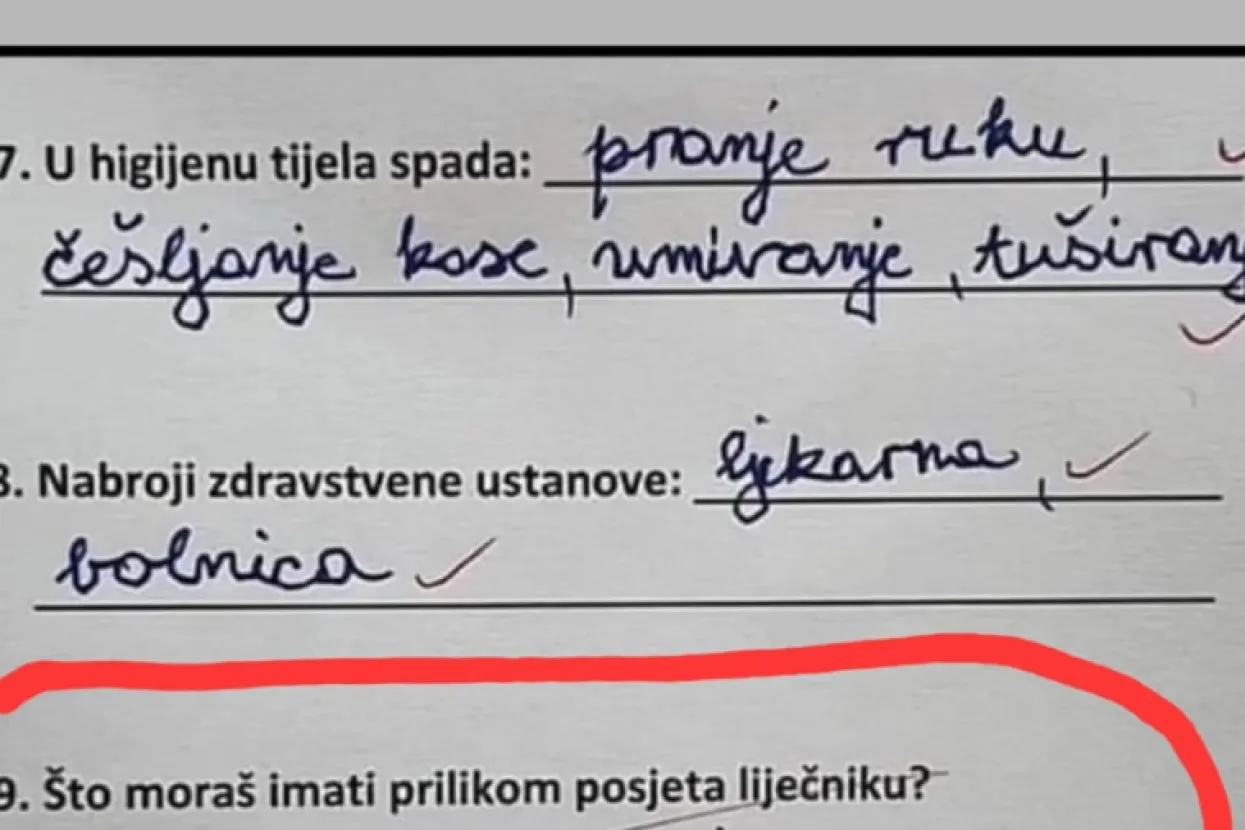 7. U higijenu tijela spada: pranje ruku,
češljanje kose, umivanje, tuširanj
8. Nabroji zdravstvene ustanove: ljekarna,
bolnica
9. Što moraš imati prilikom posjeta liječniku?